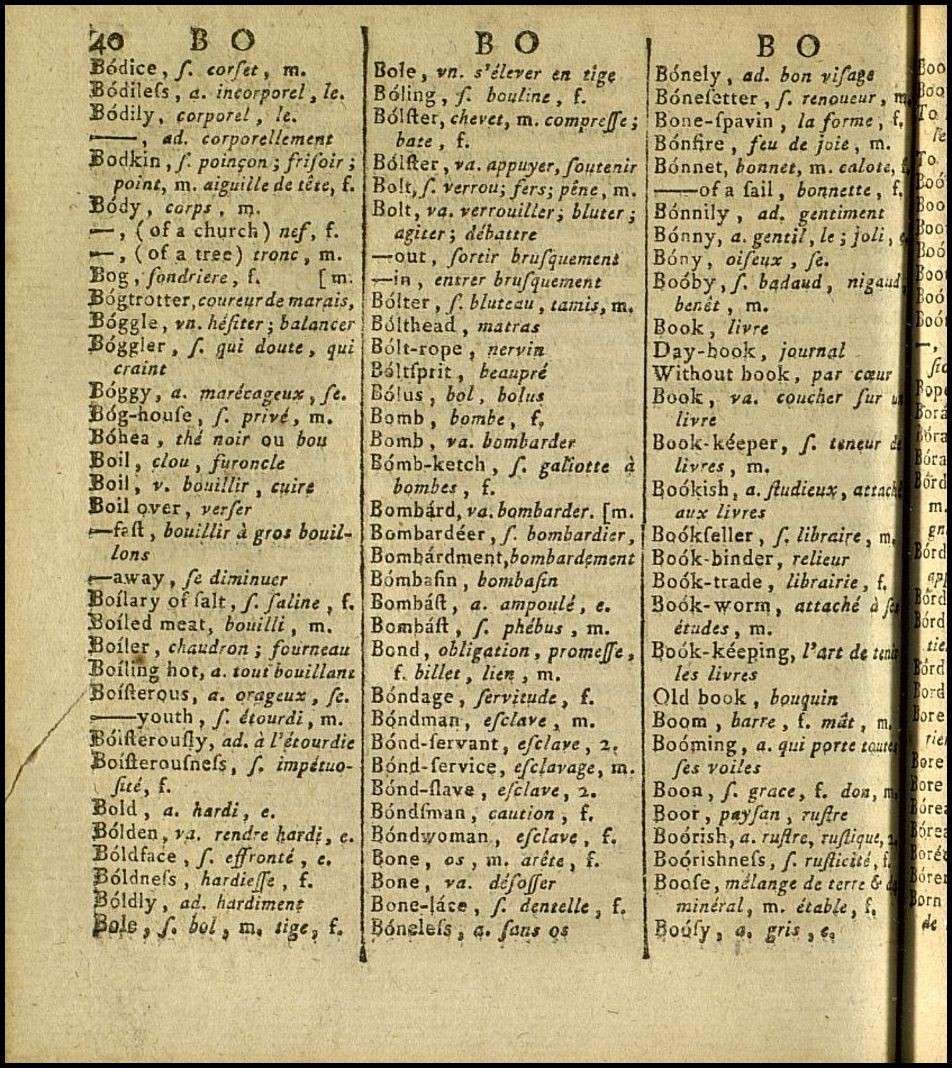 40 B O
Bódice, ſ. corſet, m.
Bódileſs, a. incorporel, le.
Bódily, corporel, le.
——, ad. corporellement
Bodkin, ſ. poinçon; friſoir;
point, m. aiguille de tête, f.
Bódy, corps, m.
—, (of a church) nef, f.
—, (of a tree) tronc, m.
Bog, fondriere, f. [m.
Bógtrotter, coureur de marais,
Bóggle, vn. héſiter; balancer
Bóggler, ſ. qui doute, qui
craint
Bóggy, a. marécageux, ſe.
Bóg-houſe, ſ. privé, m.
Bóhea, thé noir ou bou
Boil, clou, furoncle
Boil, v. bouillir, cuire
Boil over, verſer
—faſt, bouillir à gros bouil-
lons
—away, ſe diminuer
Boílary of ſalt, ſ. ſaline, f.
Boíled meat, bouilli, m.
Boíler, chaudron; fourneau
Boíling hot, a. tout bouillant
Boíſterous, a. orageux, ſe.
——youth, ſ. étourdi, m.
Boíſterouſly, ad. à l'étourdie
Boíſterouſneſs, ſ. impétuo-
ſité, f.
Bold, a. hardi, e.
Bólden, va. rendre hardi, e.
Bóldface, ſ. effronté, e.
Bóldneſs, hardieſſe, f.
Bóldly, ad. hardiment
Bole, ſ. bol, m. tige, f.
B O
Bole, vn. s'élever en tige
Bóling, ſ. bouline, f.
Bólſter, chevet, m. compreſſe;
bate, f.
Bólſter, va. appuyer, ſoutenir
Bolt, ſ. verrou; fers; pêne, m.
Bolt, va. verrouiller; bluter;
agiter; débattre
—out, ſortir bruſquement
—in, entrer bruſquement
Bólter, ſ. bluteau, tamis, m.
Bólthead, matras
Bólt-rope, nervin
Bóltſprit, beaupré
Bólus, bol, bolus
Bomb, bombe, f.
Bomb, va. bombarder
Bómb-ketch, ſ. galiotte à
bombes, f.
Bombárd, va. bombarder. [m.
Bombardéer, ſ. bombardier,
Bombárdment, bombardement
Bómbaſin, bombaſin
Bombáſt, a. ampoulé, e.
Bombáſt, ſ. phébus, m.
Bond, obligation, promeſſe,
f. billet, lien, m.
Bóndage, ſervitude, f.
Bóndman, eſclave, m.
Bónd-ſervant, eſclave, 2.
Bónd-ſervice, eſclavage, m.
Bónd-ſlave, eſclave, 2.
Bóndſman, caution, f.
Bóndwoman, eſclave, f.
Bone, os, m. arête, f.
Bone, va. déſoſſer
Bone-láce, ſ. dentelle, f.
Bóneleſs, a. ſans os
B O
Bónely, ad. bon viſage
Bóneſetter, ſ. renoueur, m.
Bone-ſpavin, la forme, f.
Bónfire, feu de joie, m.
Bónnet, bonnet, m. calote,
——of a ſail, bonnette, f.
Bónnily, ad. gentiment
Bónny, a. gentil, le; joli,
Bóny, oiſeux, ſe.
Boóby, ſ. badaud, nigaud
benêt, m.
Book, livre
Day-book, journal
Without book, par cœur
Book, va. coucher ſur
livre
Book-kéeper, ſ. teneur
livres, m.
Boókiſh, a. ſtudieux, attaché
aux livres
Boókſeller, ſ. libraire, m.
Boók-binder, relieur
Boók-trade, librairie, f.
Boók-worm, attaché à
études, m.
Book-kéeping, l'art de
les livres
Old book, bouquin
Boom, barre, f. mât, m.
Boóming, a. qui porte toutes
ſes voiles
Boon, ſ. grace, f. don,
Boor, payſan, ruſtre
Boóriſh, a. ruſtre, ruſtique,
Boóriſhneſs, ſ. ruſticité, f.
Booſe, mélange de terre &
minéral, m. étable, f.
Boóſy, a. gris, e.